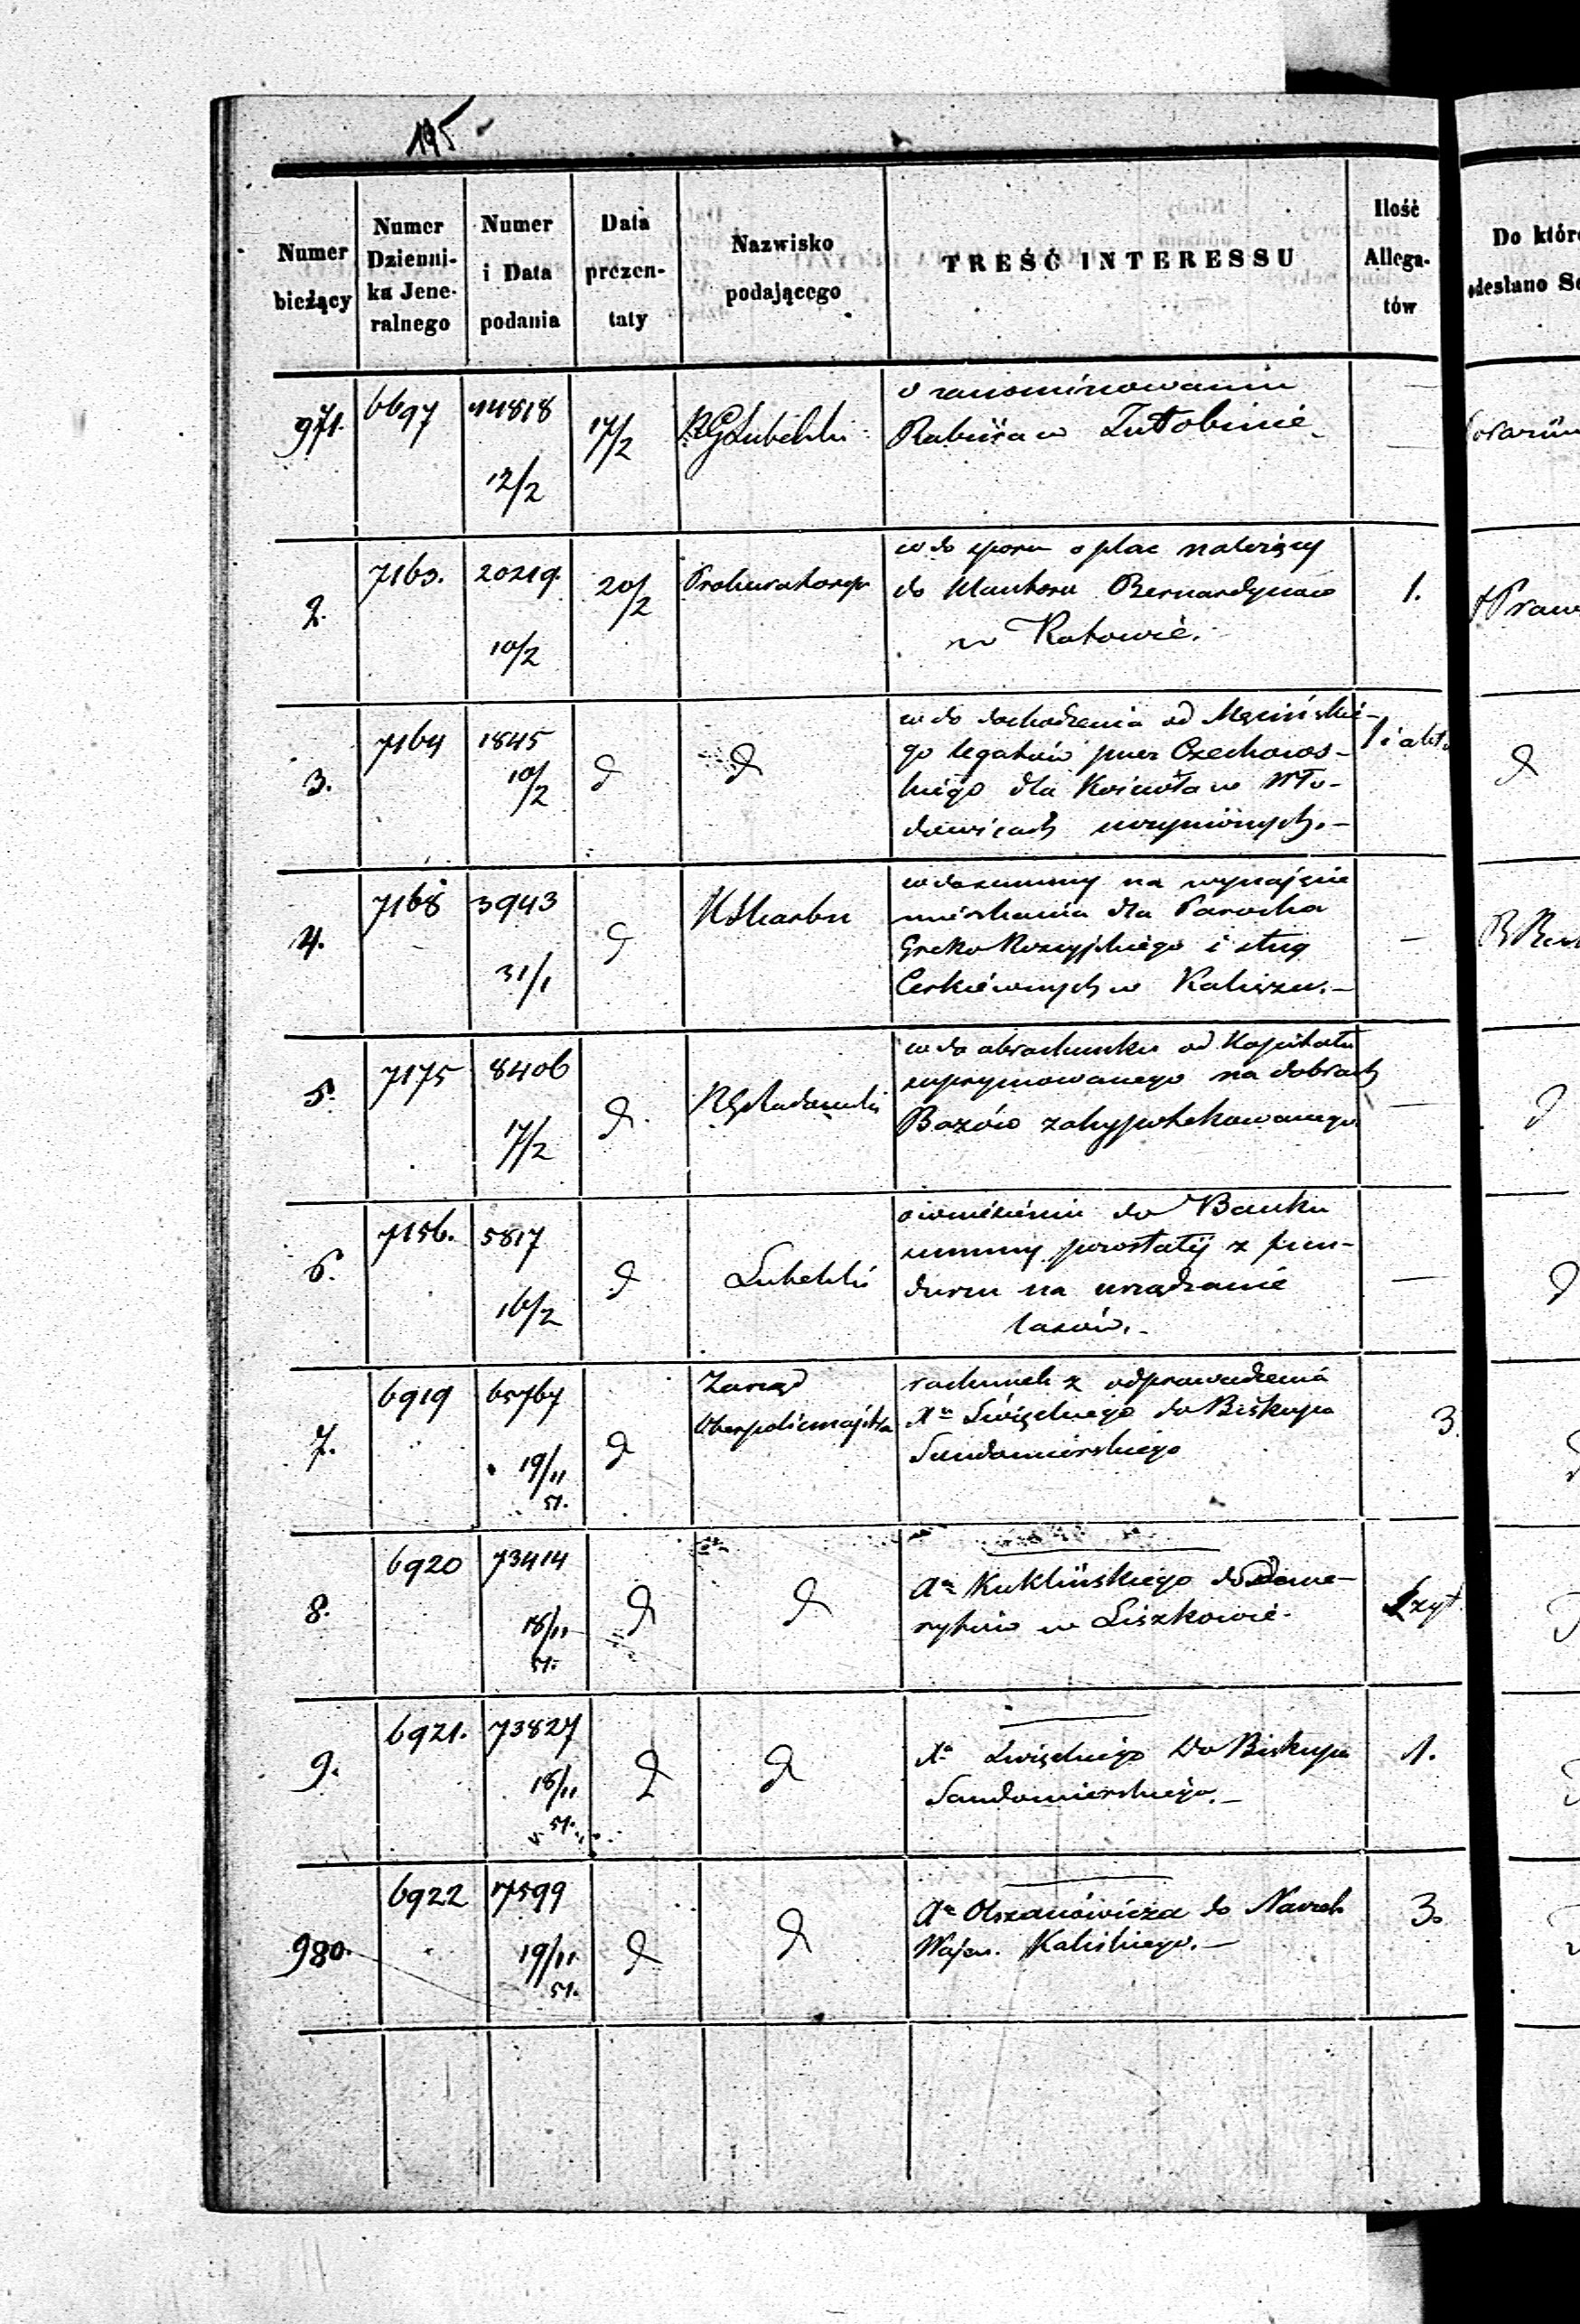 195
Numer bieżący
Numer Dzienni- ka Jene- ralnego
Numer i Data podania
Data prezen- taty
Nazwisko podającego
TREŚĆ INTERESSU
Ilość Allega- tów
Do któr
odesłano Se
971. 6697 14818 12/2 17/2 RGLubelski
o zanominowaniu
Rabina w Tutobinie
2. 7163. 20219. 10/2 20/2 Prokuratorya 1.
w do sporu o plac należący
do Klasztoru Bernardynów
w Ratowie.
3. 7164 1845 10/2 d d 1 i akta d
w do dochodzenia od Męcińskie-
go legatów przez Czechows-
kiego dla Kościoła w Wło-
dowicach uczynionych.-
4. 7168 3943 31/1 d KSkarbu —
w do summy na wynajęcie
mieszkania dla Parocha
Greko Rossyjskiego i sług
Cerkiewnych w Kaliszu.-
5. 7175 8406 17/2 d RGRadomski — d
w do obrachunku od Kapitału
suprymowanego na dobrach
Bozów zahypotekowanego
6. 7156. 5817 16/2 d Lubelski — d
o wniesieniu do Banku
summy powstałej z fun-
duszu na urządzanie
lasów.-
7. 6919 65767 19/11 51. d Zarząd Oberpolicmajstra 3.
rachunek z odprowadzenia
Xa Święckiego do Biskupa
Sandomierskiego
8. 6920 73414 18/11 51. d d
Xa Kuklińskiego do Deme-
rytów w Liszkowie.
9. 6921. 73827 18/11 51. d d 1.
Xa Święckiego do Biskupa
Sandomierskiego.-
980. 6922 7599 19/11 51. d d 3.
Xa Olszanowicza do Naczel
Wojen. Kaliskiego.-